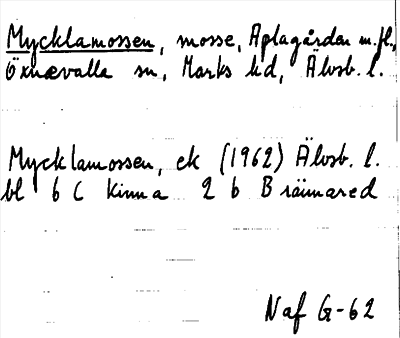 Mycklamossen, mosse, Aplagården m.fl.,
Öxnevalla sn, Marks hd, Älvsb. l.
Mycklamossen, ek (1962) Älvsb. l.
bl 6 C Kinna 2 b Brännared
Naf G-62